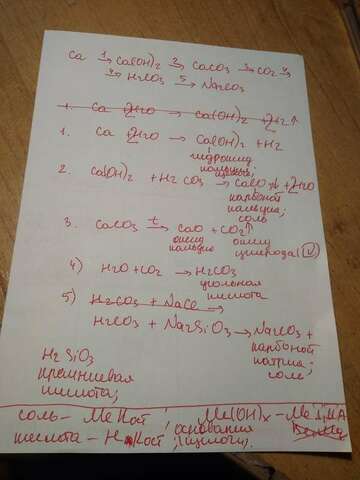 Ca 1→ Ca(OH)2 2→ CaCO3 3→ CO2 4→
4→ H2CO3 5→ Na2CO3
1. Ca + 2H2O → Ca(OH)2 + H2↑
1. Ca + 2H2O → Ca(OH)2 + H2
гидроксид
кальция, щелочь
2. Ca(OH)2 + H2CO3 → CaCO3↓ + 2H2O
карбонат
кальция;
соль
3. CaCO3 t→ CaO + CO2↑
оксид кальция
оксид углерода (IV)
4) H2O + CO2 → H2CO3
угольная
кислота
5) H2CO3 + NaCl →
H2CO3 + Na2SiO3 → Na2CO3 +
карбонат
натрия;
соль
H2SiO3
кремниевая
кислота;
соль - Me Кост ; Me(OH)x - Me
кислота - H Кост ; основания
(щелочи)